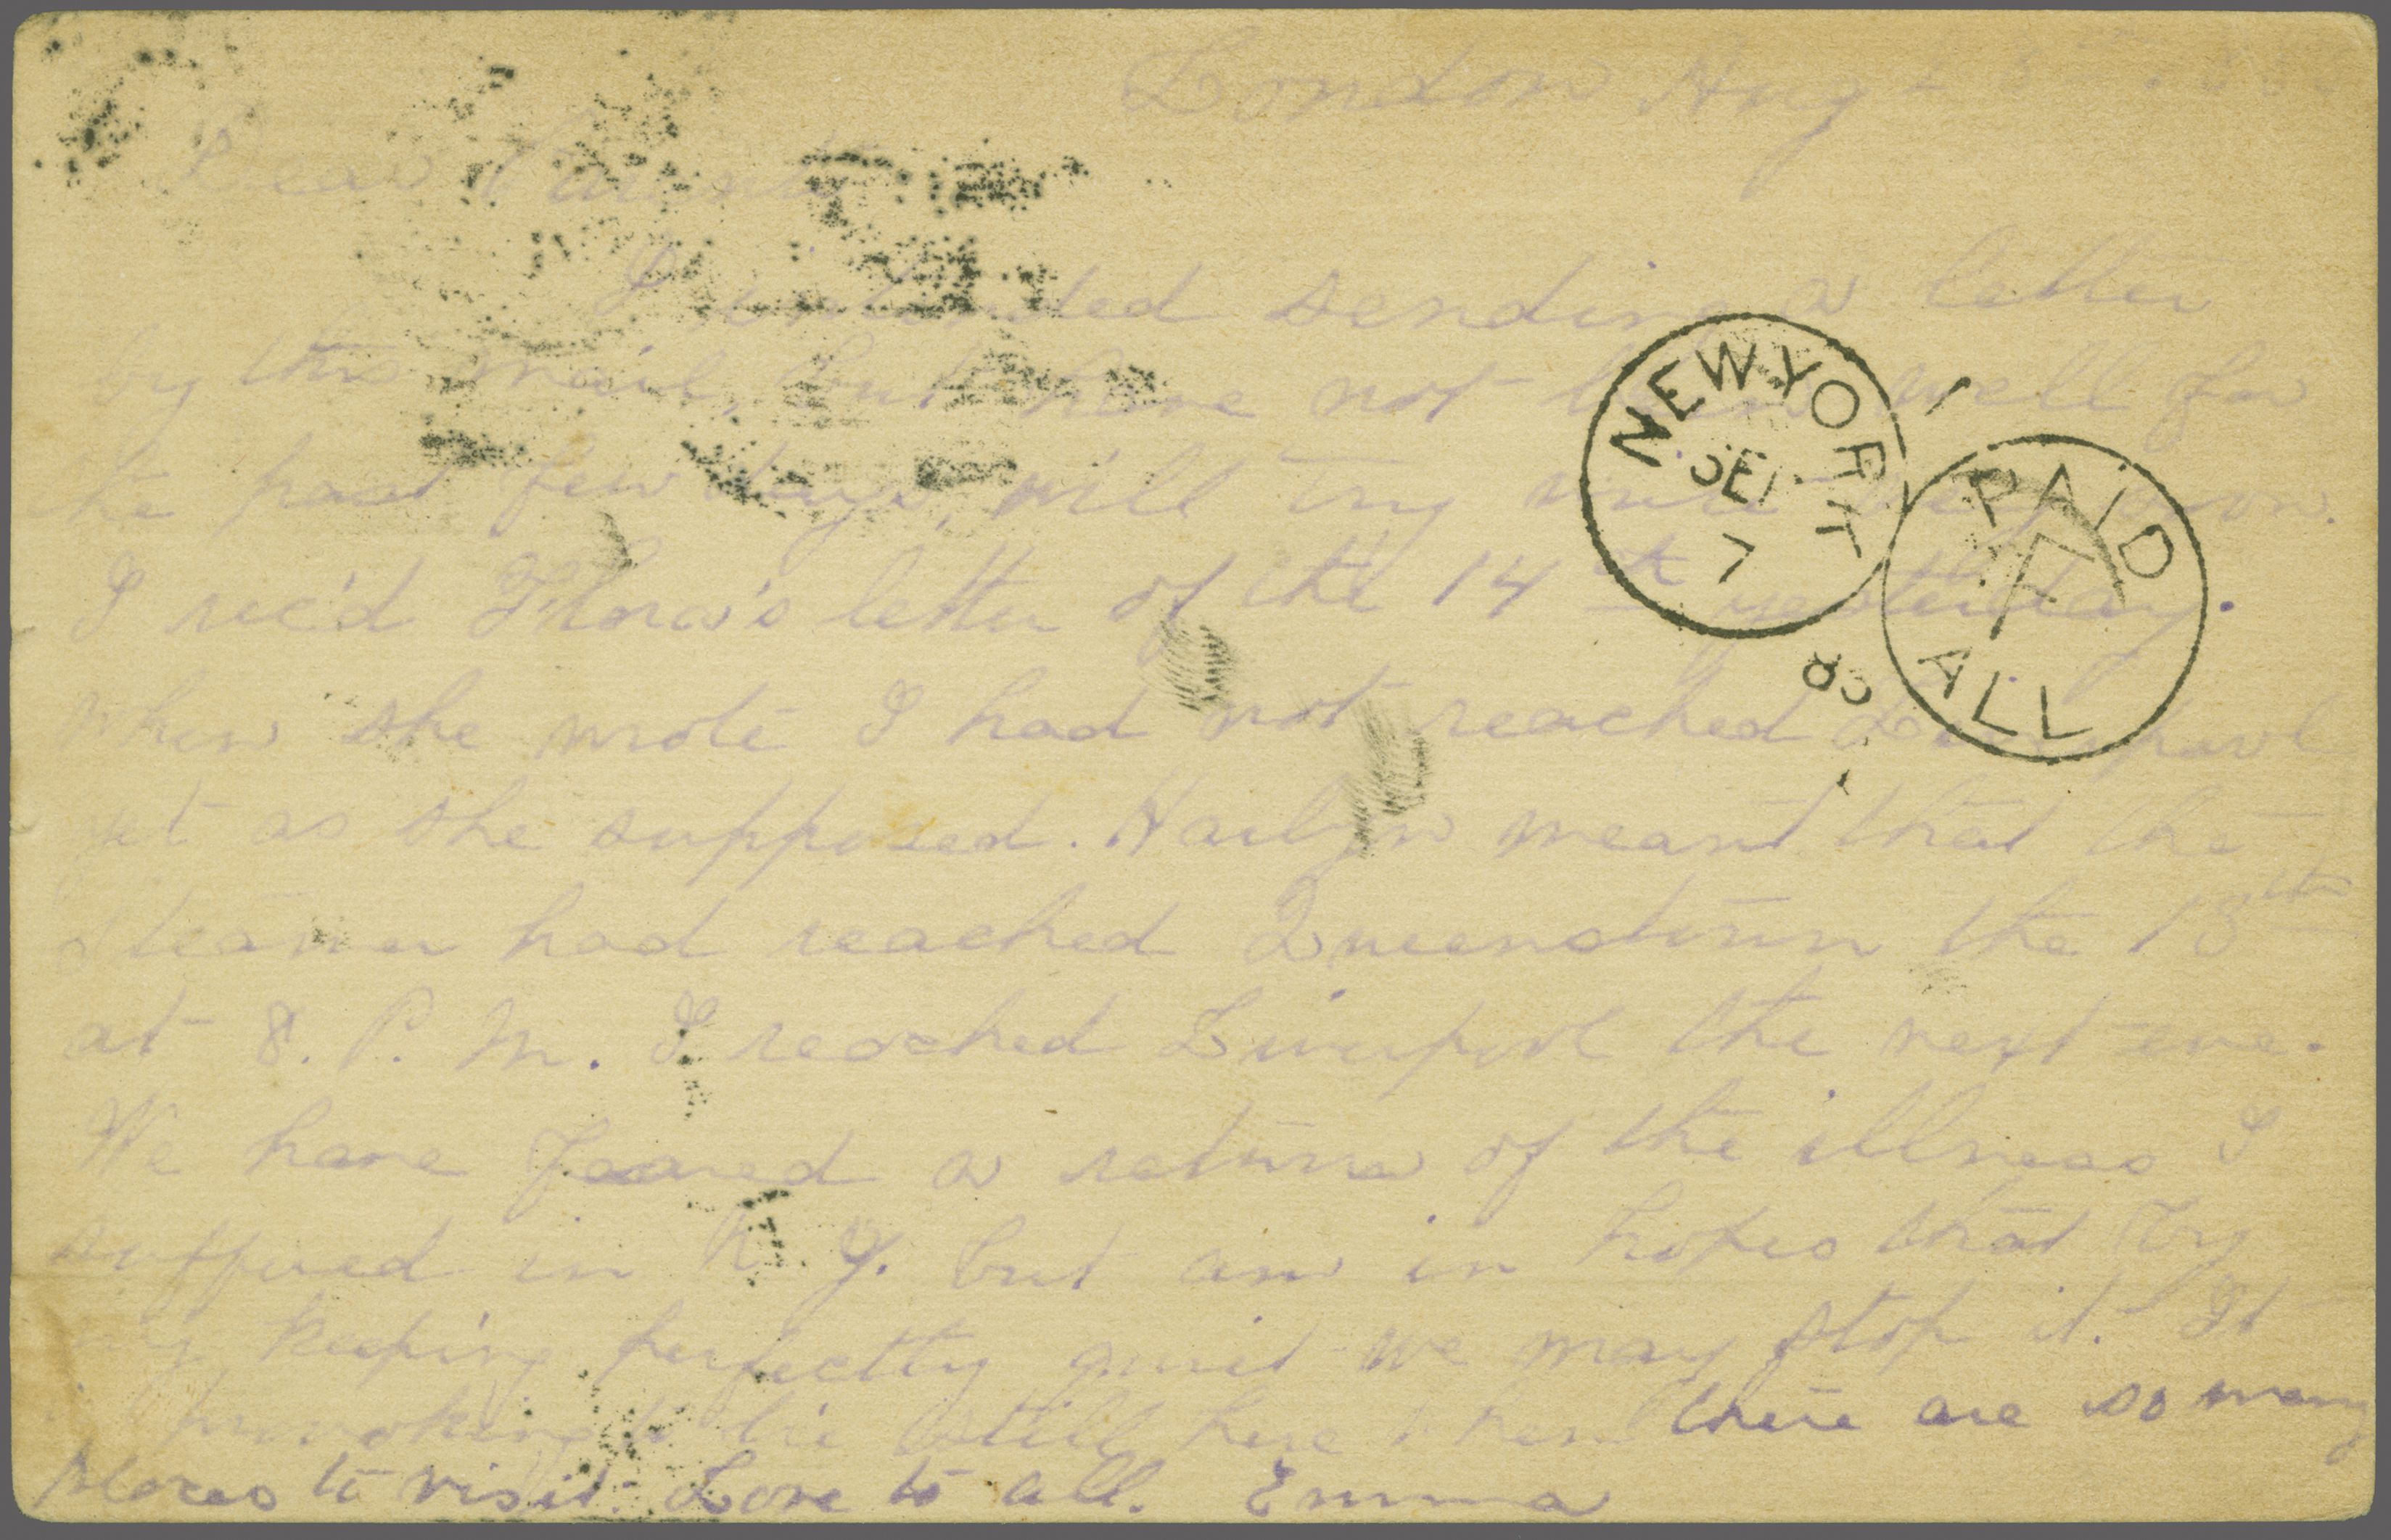 London Aug
Dear
I intended sending a letter
by this mail, but have not been well for
the past few days, will try write very soon.
I rec'd Flora's letter of the 14th yesterday.
When she wrote I had not reached Liverpool
yet as she supposed. meant that the
steamer had reached Queenstown the 13th
at 8. P. M. I reached Liverpool the next eve.
We have feared a return of the illness I
suffered in N. Y. but am in hopes that by
my keeping perfectly quiet we may stop it. It
is provoking to lie still here when there are so many
places to visit. Love to all. Emma
NEW YORK
SEP
7
PAID
ALL